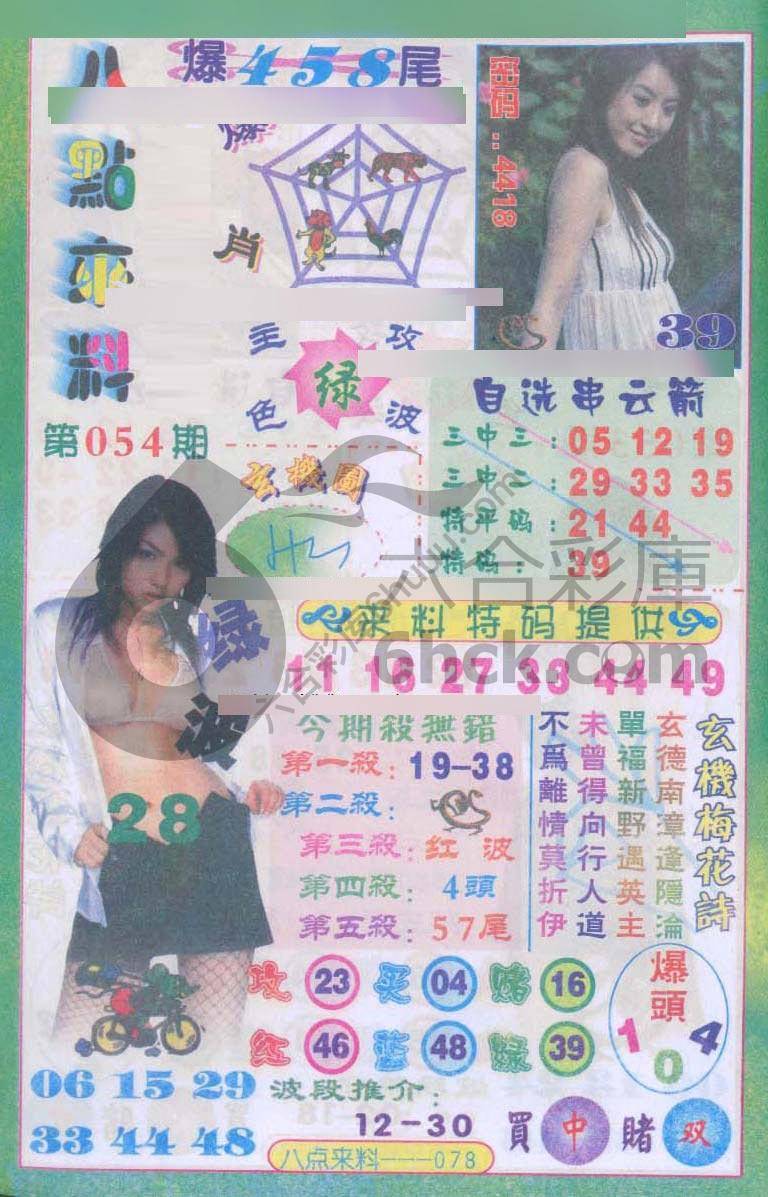 八點來料
爆458尾
爆肖
密码:4418
39
主攻
绿
色波
第054期
玄機圖
自选串云箭
三中三:05 12 19
三中二:29 33 35
特平码:21 44
特码:39
绿波
28
来料特码提供
11 16 27 33 44 49
今期殺無錯
第一殺:19-38
第二殺:
第三殺:红波
第四殺:4頭
第五殺:57尾
玄機梅花詩
玄德南漳逢隱淪
單福新野遇英主
未曾得向行人道
不爲離情莫折伊
攻 23 买 04 赌 16
红 46 蓝 48 绿 39
爆頭
1 0 4
06 15 29
33 44 48
波段推介:
12-30
買中賭双
八点来料---078
六合彩库
6hck.com